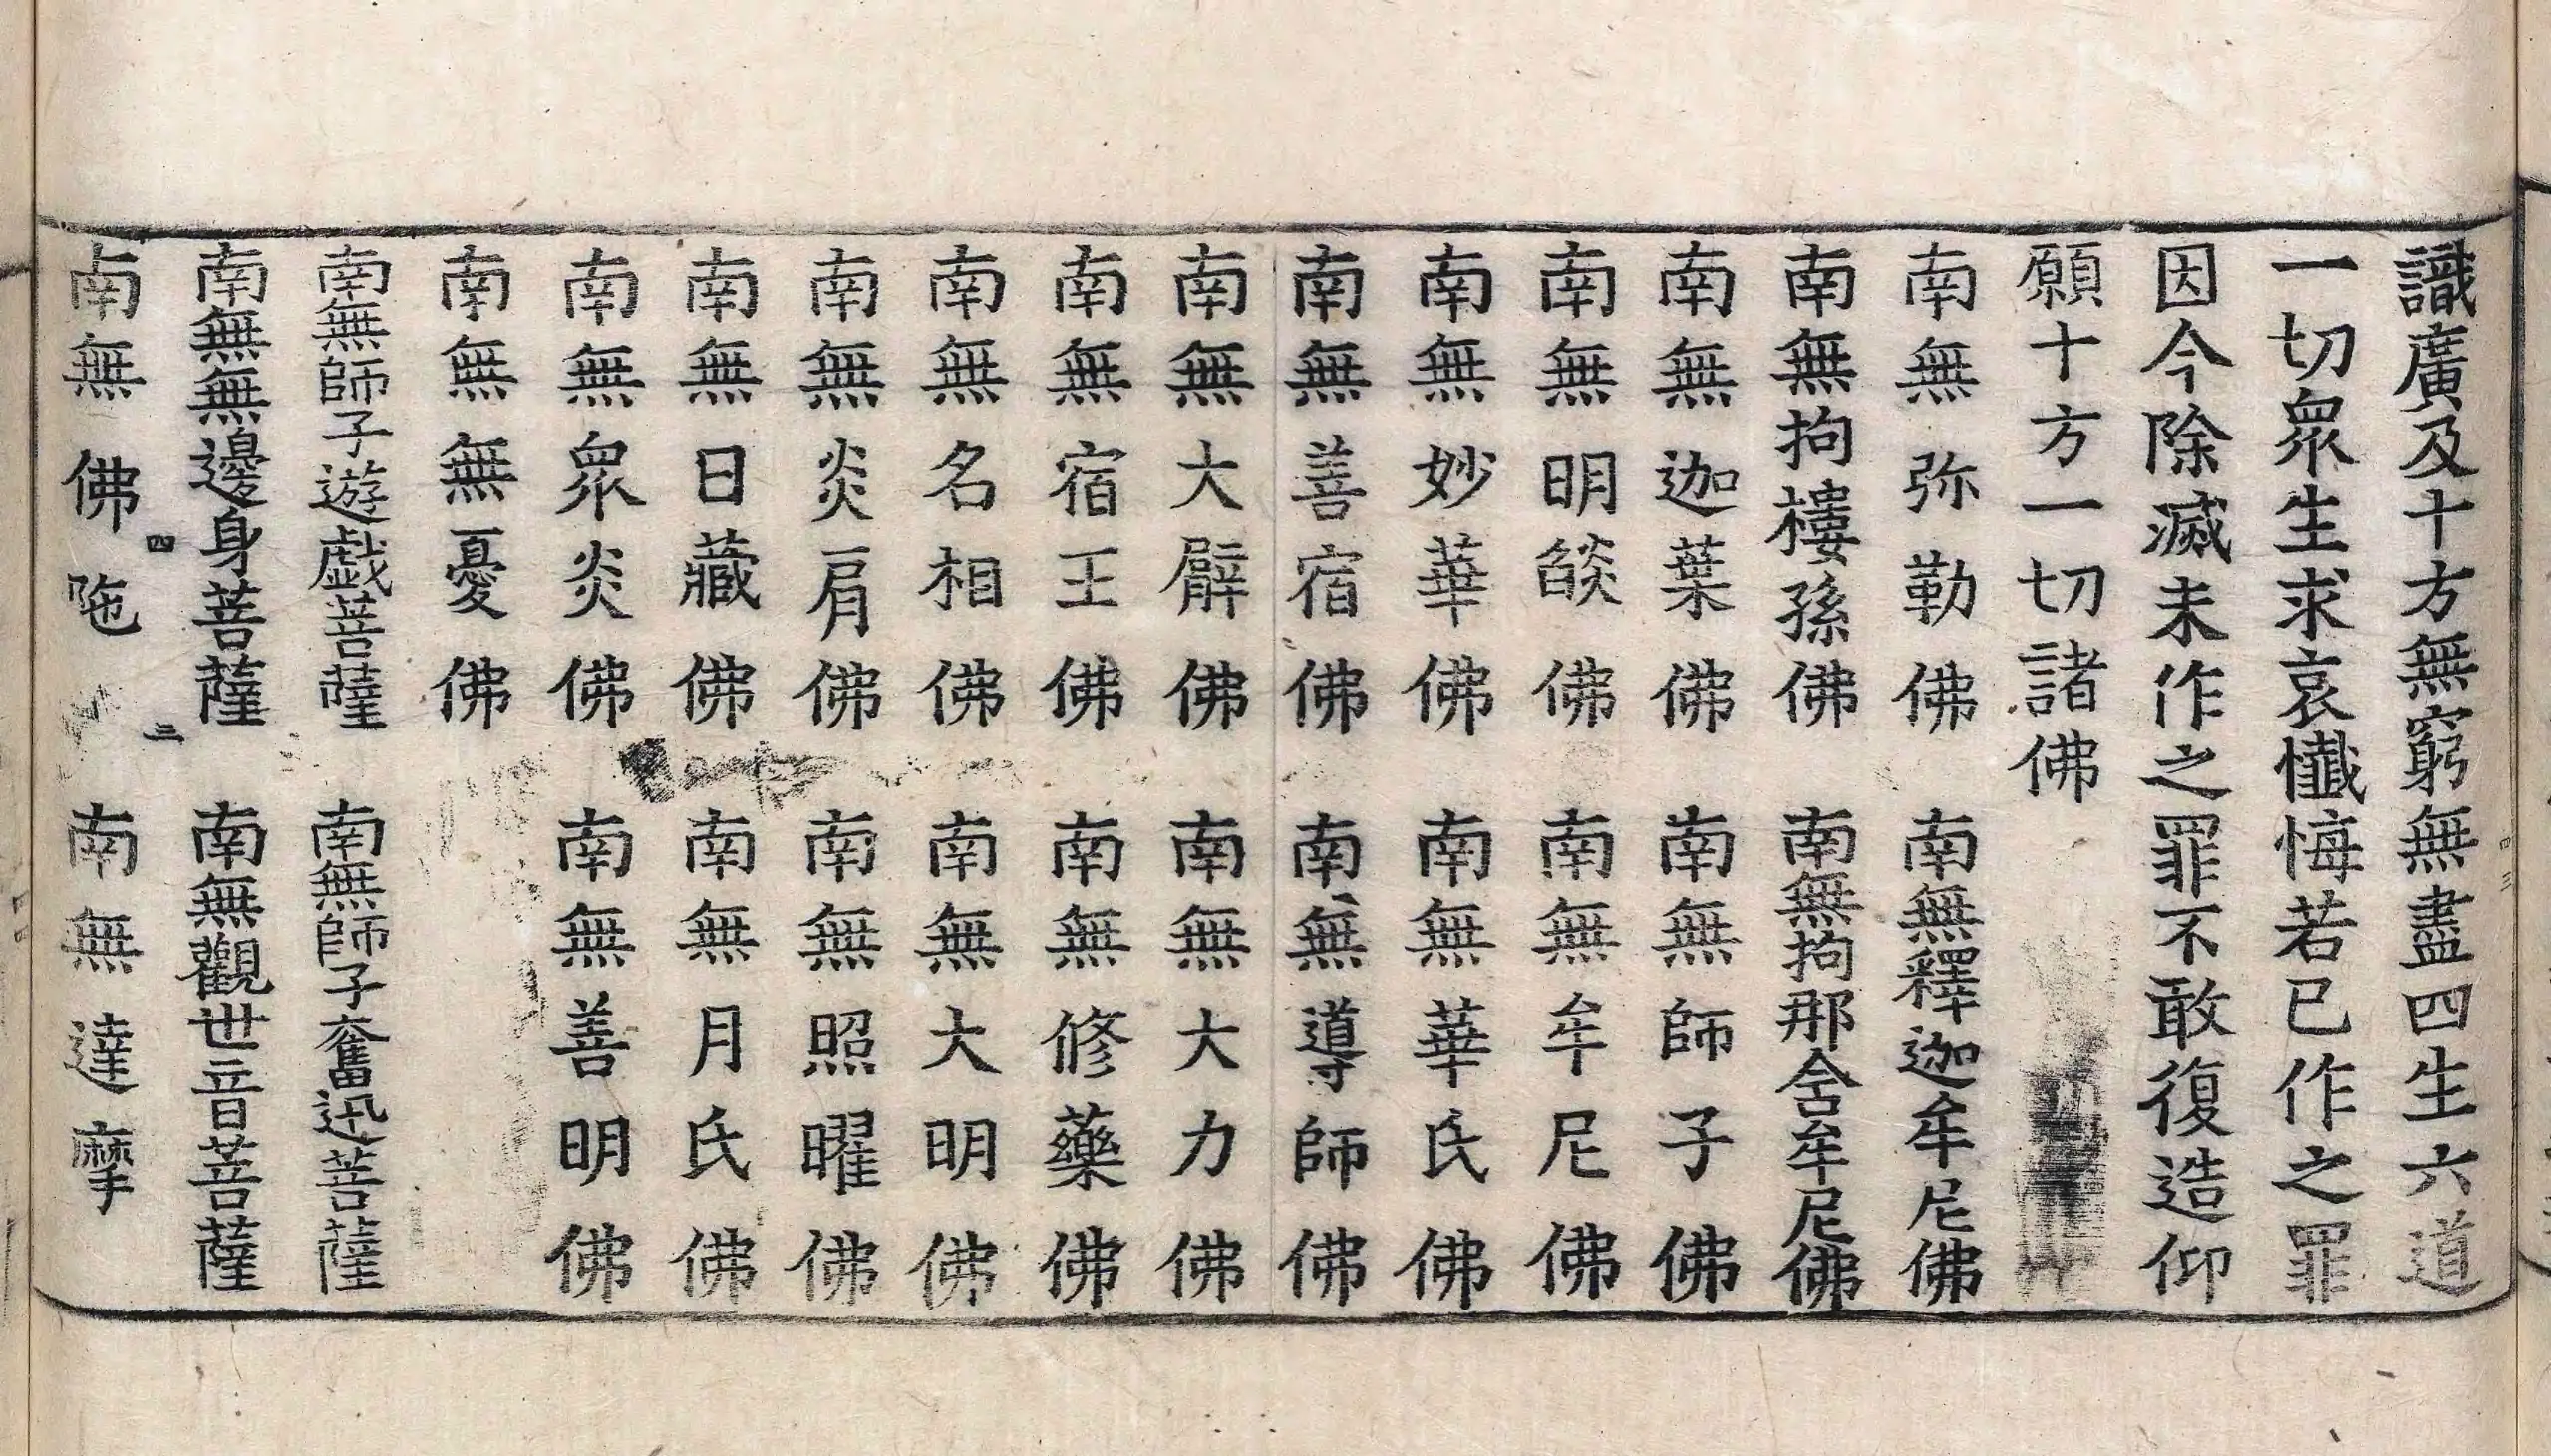 識廣及十方無窮無盡四生六道
一切衆生求哀懺悔若已作之罪
因今除滅未作之罪不敢復造仰
願十方一切諸佛
南無弥勒佛 南無釋迦牟尼佛
南無拘樓孫佛 南無拘那舍牟尼佛
南無迦葉佛 南無師子佛
南無明燄佛 南無牟尼佛
南無妙華佛 南無華氏佛
南無善宿佛 南無導師佛
南無大臂佛 南無大力佛
南無宿王佛 南無修藥佛
南無名相佛 南無大明佛
南無炎肩佛 南無照曜佛
南無日藏佛 南無月氏佛
南無衆炎佛 南無善明佛
南無無憂佛
南無師子遊戲菩薩 南無師子奮迅菩薩
南無無邊身菩薩 南無觀世音菩薩
四 三
南無佛陁 南無達摩